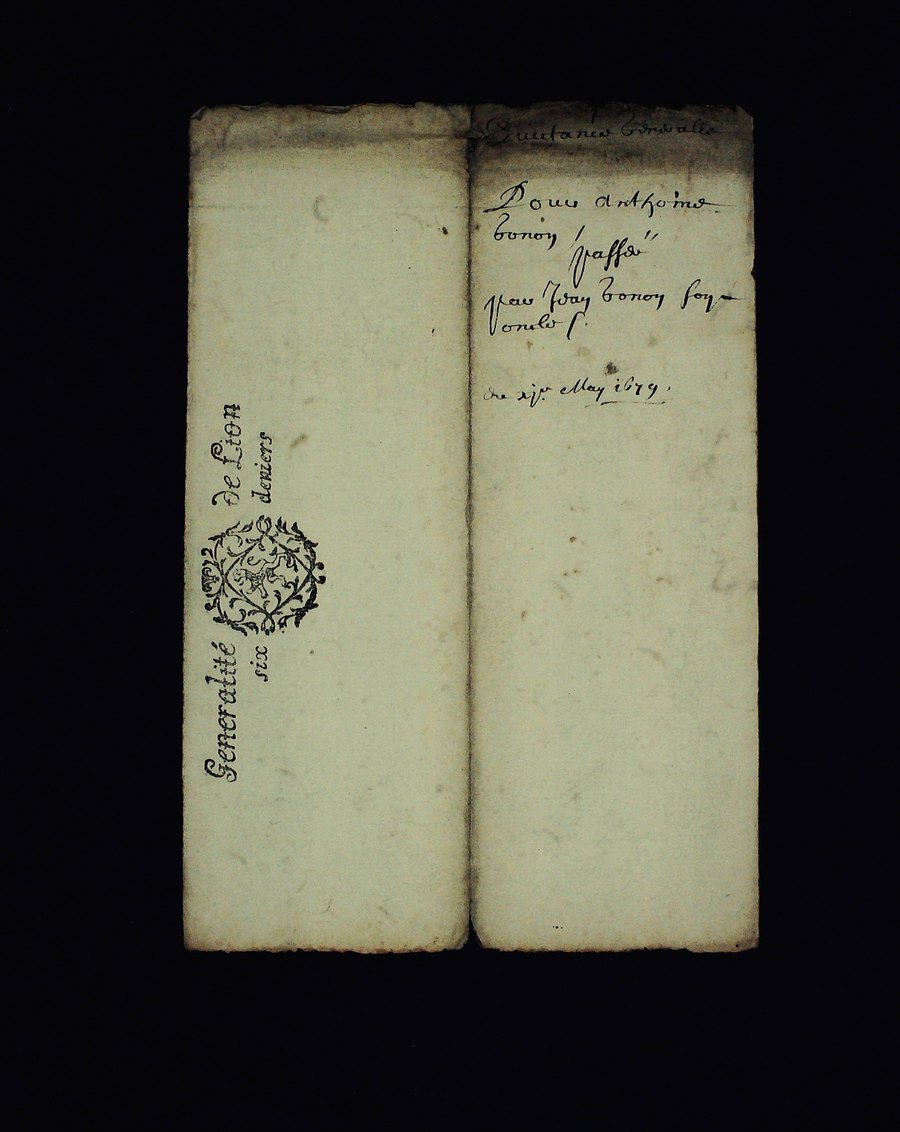 Generalité de Lion
six deniers
Quictance Generalle
Pour Anthoine
bonon
passée
par Jean bonon son
oncle
du xje May 1679.